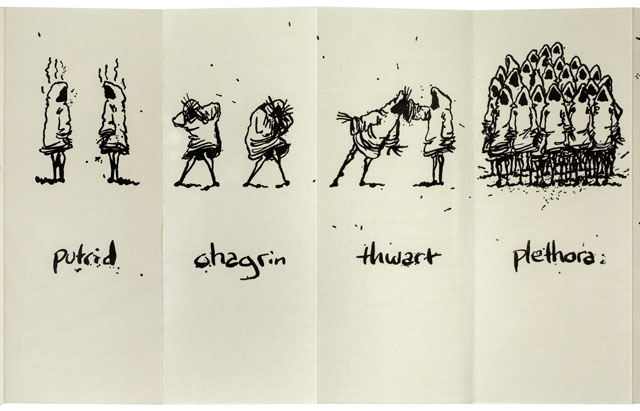 putrid
chagrin
thwart
plethora